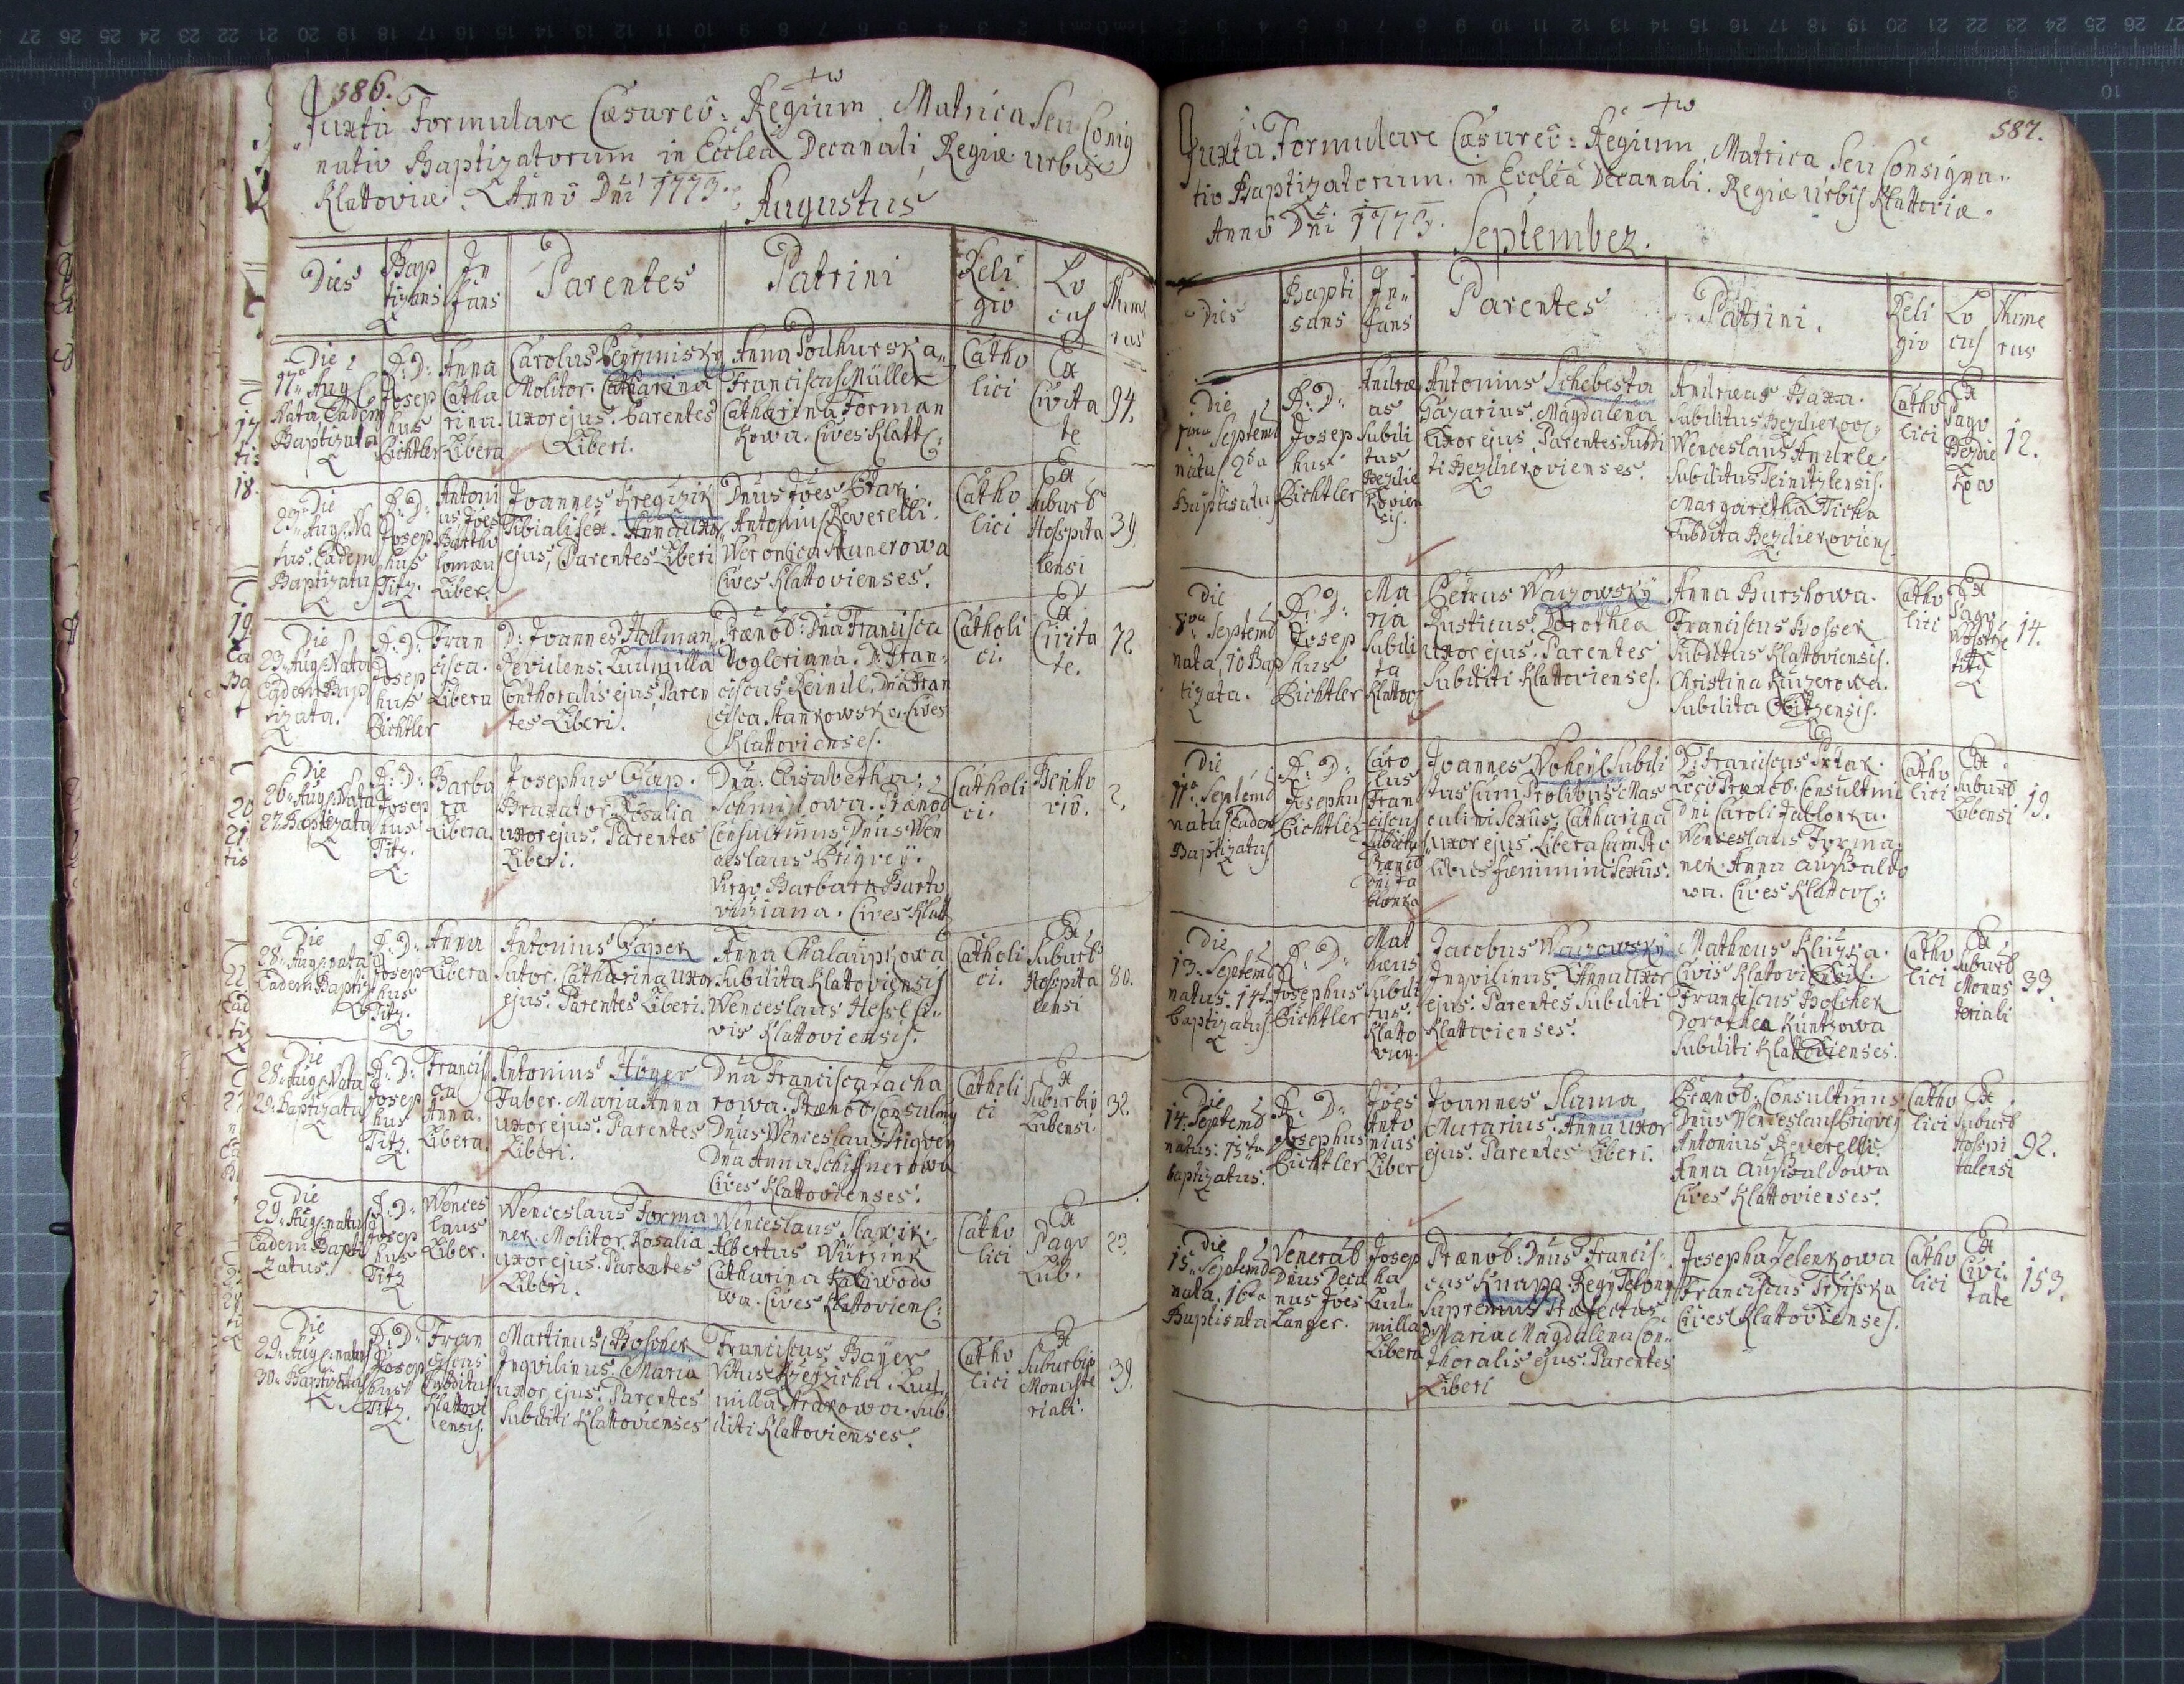 586.
Juxta Formulare Cæsareo=Regium Matrica Seu Consig
natio Baptizatorum in Ecclea Decanali Regiæ urbis
Klattoviæ. Anno Dni 1773. Augustus
Dies
Bap
tizans
In
fans
Parentes
Patrini
Reli
gio
Lo
cus
Nume
rus
Die
17a Aug
Nata Eadem
Baptizata
A: D:
Josep
hus
Bichtler
Anna
Catha
rina.
Libera
Carolus
Molitor. Catharina
uxor ejus. Parentes
Liberi.
Anna Podhurska.
Franciscus Müller
Catharina Forman
kowa. Cives Klatt:
Catho
lici
Ex
Civita
te
94.
Die
23. Aug: Na
tus. Eadem
Baptizatus
A: D:
Josep
hus
Titz.
Antoni
us Joes
Bartho
lomæu
Liber.
Joannes Kregczik
Tibialifex. Anna uxor
ejus, Parentes Liberi
Dnus Joes Ptak.
Antonius Reverelli.
Weronica Kunerowa
Cives Klattovienses.
Catho
lici
Ex
Suburb
Hosspita
lensi
39.
Die
23. Aug: Nata
Eadem Bap
tizata.
A: D:
Josep
hus
Bichtler
Fran
cisca.
Libera
D: Joannes Hollman
Ludmilla
Conthoralis ejus, Paren
tes Liberi.
Prænob: Dna Francisca
Vogleriana. D: Fran
ciscus Reindl. Dna Fran
cisca Stankowska. Cives
Klattovienses.
Catholi
ci.
Ex
Civita
te.
72.
Die
26. Aug: Nata
27. Baptizata
A: D:
Josep
hus
Titz.
Barba
ra
Libera.
Josephus Czap.
Braxator. Rosalia
uxor ejus. Parentes
Liberi.
Dna: Elisabetha
Schmidlowa. Prænob
Consultmus Dnus Wen
ceslaus Prigvey.
Virgo Barbara
Cives Klatt
Catholi
ci.
2.
Die
28. Aug: nata
Eadem Baptiz
A: D:
Josep
hus
Titz.
Anna
Libera
Antonius Czaper
Sutor. Catharina uxor
ejus. Parentes Liberi.
Anna Chalaupkowa
Subdita Klattoviensis
Wenceslaus Hessl Ci
vis Klattoviensis.
Catholi
ci.
Ex
Suburb
Hosspita
lensi
80.
Die
28. Aug: Nata
29. Baptizata
A: D:
Josep
hus
Titz.
Francis
ca
Anna.
Libera.
Antonius Höyer
Faber. Maria Anna
uxor ejus. Parentes
Liberi.
Dna Francisca Zacha
rowa. Prænob Consultmg
Dnus Wenceslaus Prigvey
Dna Anna Schiffnerowa
Cives Klattovienses.
Catholi
ci
Ex
Suburbio
Lubensi.
32.
Die
29. Aug: natus
Eadem Bapti
zatus.
A: D:
Josep
hus
Titz
Wences
laus
Liber.
Wenceslaus Forma
nek. Molitor. Rosalia
uxor ejus. Parentes
Liberi.
Wenceslaus Slawik.
Albertus Würzink
Catharina Kaliwodo
wa. Cives Klattoviens:
Catho
lici
Ex
Pago
Lub.
23.
Die
29. Aug: natus
30. Baptizatus
A: D:
Josep
hus
Titz.
Fran
ciscus
Subditus
Klattovi
ensis.
Martinus Boscher
Inqvilinus. Maria
uxor ejus. Parentes
Subditi Klattovienses
Franciscus Bayer
Vitus Lud
milla Subditi Klattovienses.
Catho
lici
Ex
Suburbio
Monaste
riali.
39.
587.
Juxta Formulare Cæsareo=Regium Matrica Seu Consigna..
tio Baptizatorum. in Ecclea Decanali. Regiæ Urbis Klattoviæ.
Anno Dni 1773. September.
Dies
Bapti
sans
In..
fans
Parentes
Patrini.
Reli
gio
Lo
cus
Nume
rus
Die
1ma Septemb
natus 2da
Baptisatus
A: D:
Josep
hus
Bichtler
Andræ
as
Subdi
tus
Bezdie
kovien
sis.
Antonius Schebesta
Gazarius. Magdalena
Uxor ejus. Parentes Subdi
ti Bezdiekovienses.
Andræas Baxa.
Subditus Bezdiekov:
Wenceslaus Andrle.
Subditus Teinitzlensis.
Margaretha Ticha
Subdita Bezdiekoviens.
Catho
lici
Ex
Pago
Bezdie
kov
12.
Die
8va Septemb
nata, 10 Bap
tizata.
A: D:
Josep
hus
Bichtler
Ma
ria
Subdi
ta
Klattov
Petrus Wanzowsky
Rusticus. Dorothea
uxor ejus. Parentes
Subditi Klattovienses.
Anna Burshowa.
Franciscus Hosser
Subditus Klattoviensis.
Christina Kuczerowa.
Subdita
Catho
lici
Ex
Pago
14.
Die
11a Septemb
natus Eadem
Baptizatus
A: D:
Josephu
Bichtler
Caro
lus
Fran
ciscus
Joannes Woheyl Subdi
tus Cum Prolibus Mas
culini Sexus. Catharina
uxor ejus. Libera Cum Pro
libus fæminini Sexus.
D: Franciscus Ptak.
Loco Prænob. Consultmi
Dni Caroli Jablonka.
Wenceslaus Forma
nek. Anna Auswaldo
wa. Cives Klattov:
Catho
lici
Ex
Suburb
Lubensi
19.
Die
13. Septemb
natus. 14.
baptizatus
A: D:
Josephus
Bichtler
Mat
hæus
Subdi
tus.
Klatto
vien.
Jacobus Wanzowsky
Inqvilinus. Anna uxor
ejus. Parentes Subditi
Klattovienses.
Mathæus Kliczka.
Civis Klattoviensis
Franciscus Boscher
Dorothea Kuntzowa
Subditi Klattovienses.
Catho
lici
Ex
Suburb
Monas
teriali
33.
Die
14. Septemb
natus. 15ta
baptizatus.
A: D:
Josephus
Bichtler
Joes
Anto
nius
Liber
Joannes Slama
Murarius. Anna uxor
ejus. Parentes Liberi.
Prænob: Consultmus
Dnus Wenceslaus Prigvey
Antonius Reverelli.
Anna Auswaldowa
Cives Klattovienses.
Catho
lici
Ex
Suburb
Hosspi
talensi
92.
Die
15. Septemb
nata. 16ta
Baptisata
Venerab
Dnus Deca
nus Joes
Langer.
Josep
ha
Lud..
milla
Libera
Prænob: Dnus Francis
cus Knapp. Regy
Supremus Præfectus
Maria Magdalena Con..
thoralis ejus. Parentes
Liberi
Josepha Zelenkowa
Franciscus
Cives Klattovienses.
Catho
lici
Ex
Civi..
tate
153.